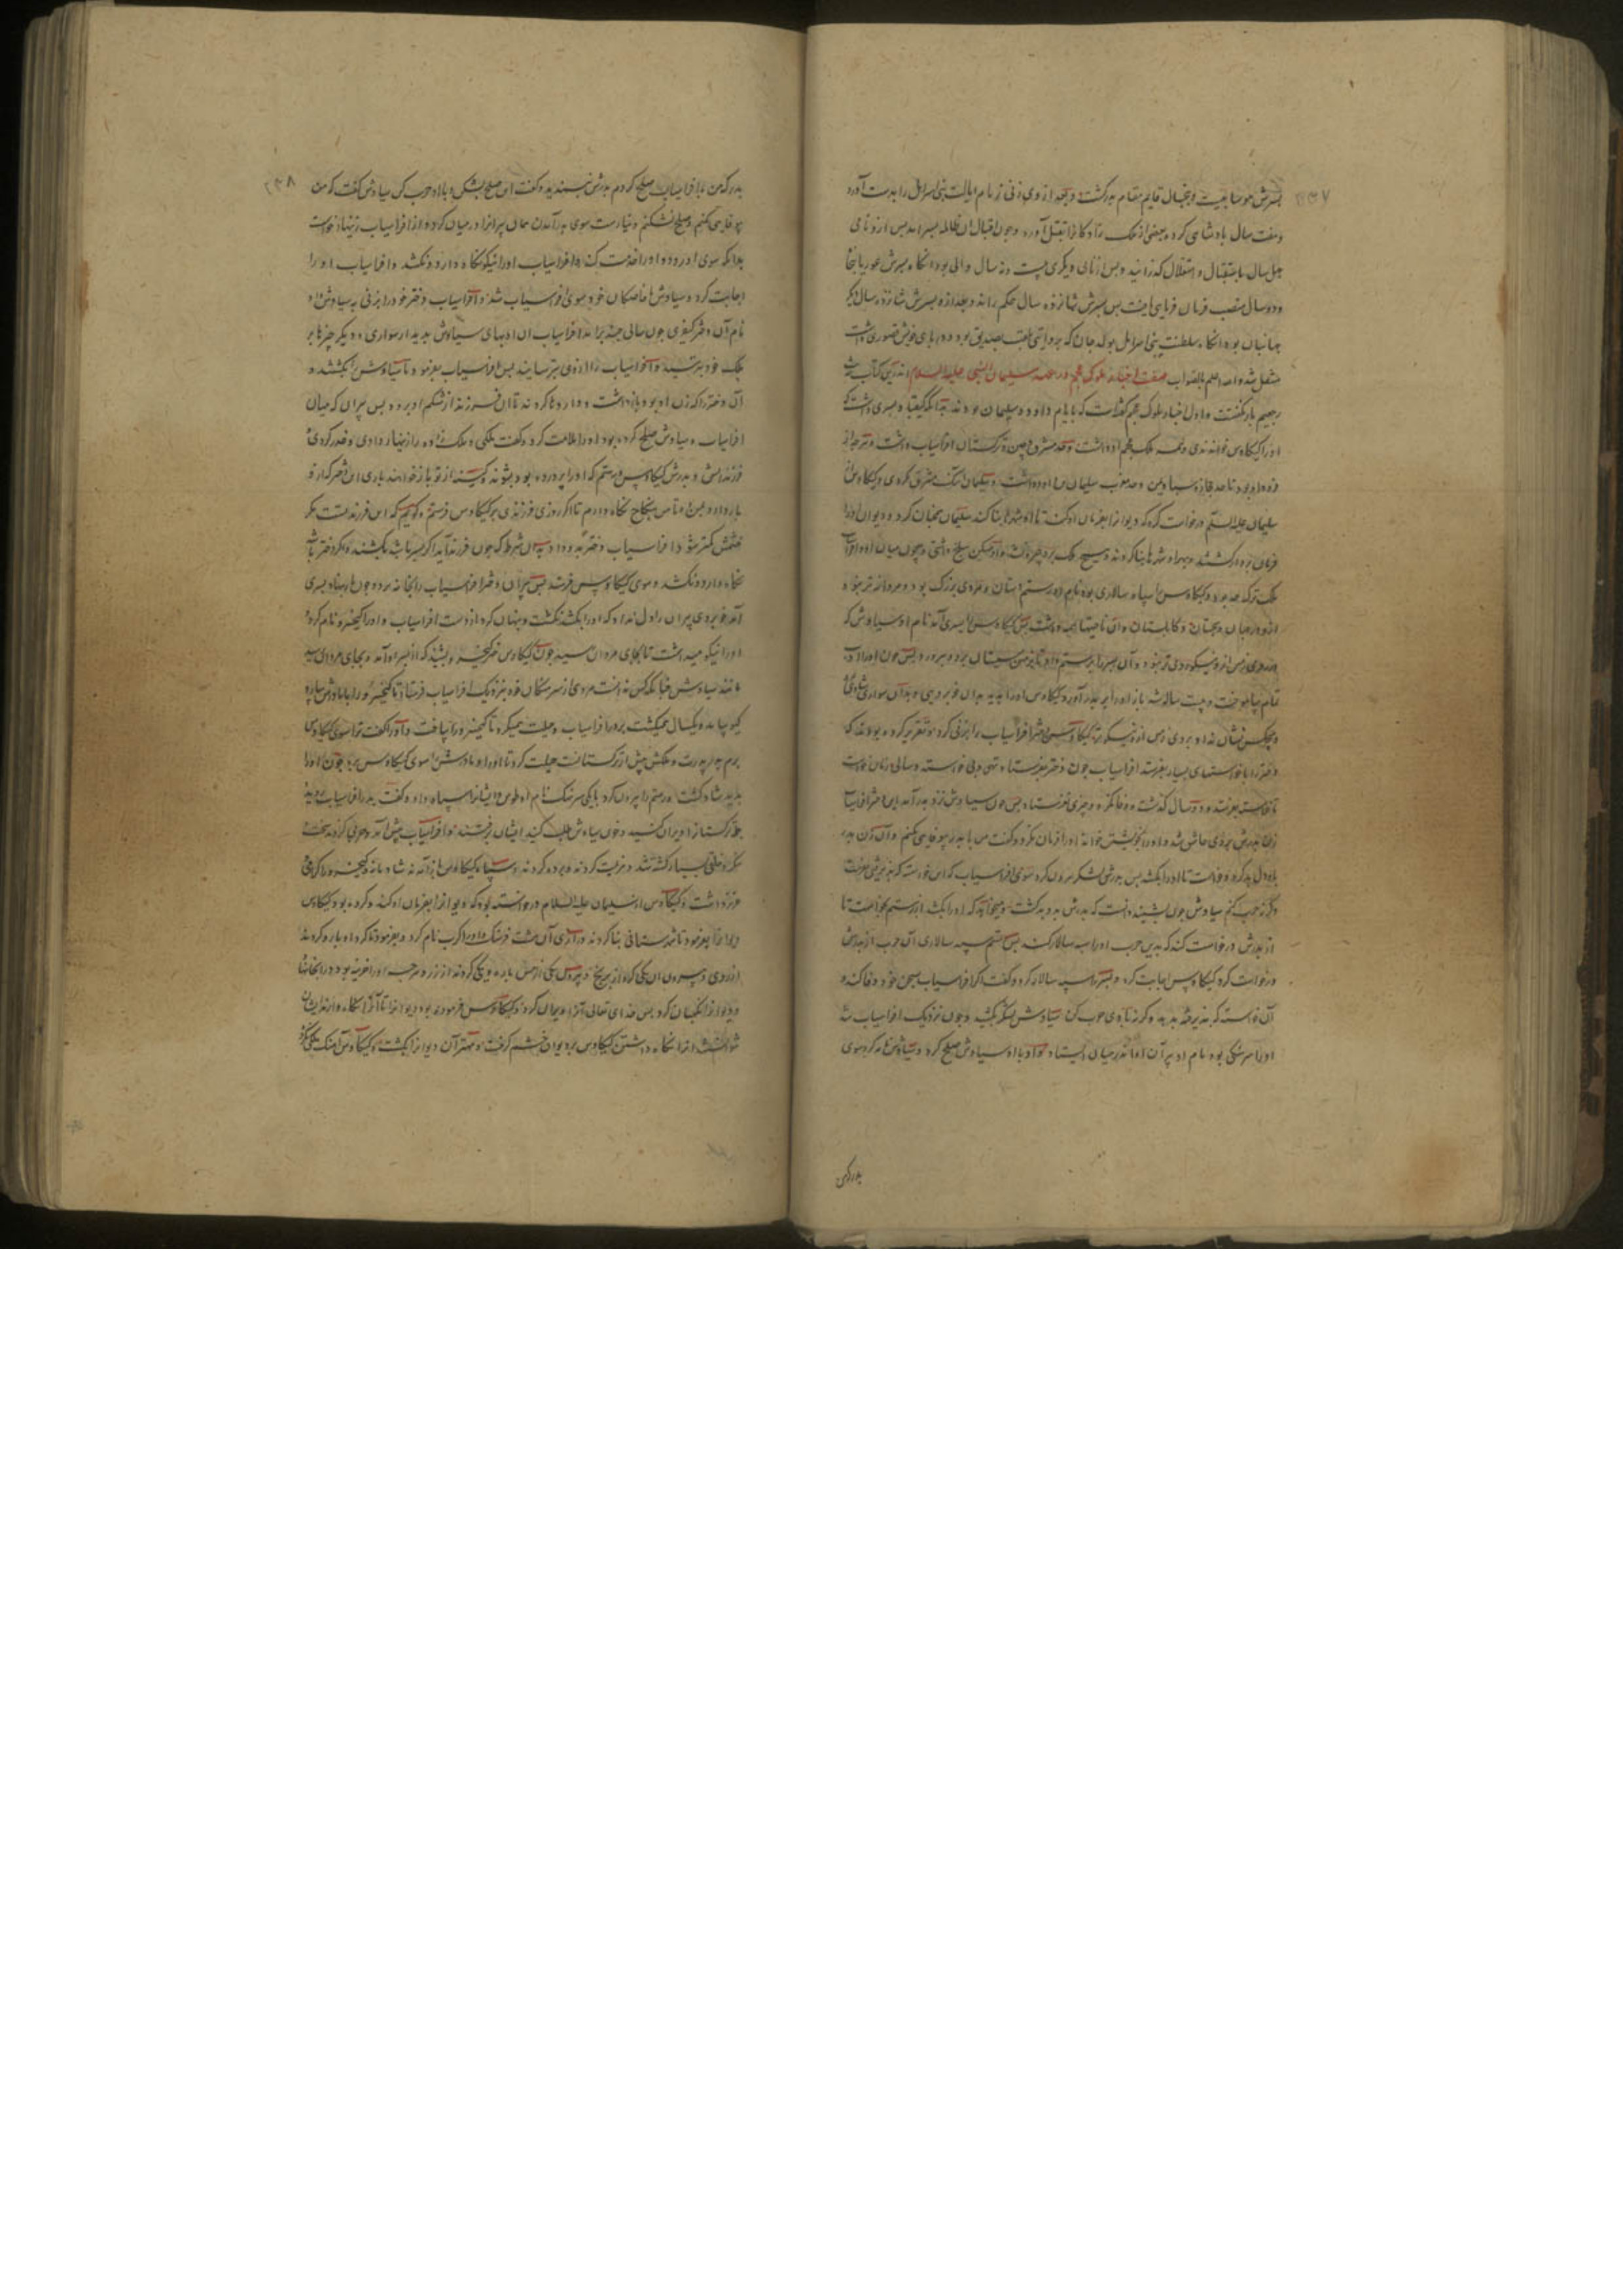 ۲۳۷
پسرش بوسا بعیت و بخبال قایم مقام پدر گشت و بعد از وی زنی زنام ایالت بنی اسرایل را بدست آورد
و هفت سال پادشاهی کرد و بعضی از ملک زادکانرا بقتل آورد و چون اقبال آن ظالمه بسر آمد پس از و نامی
چهل سال باستقبال و استقلال گذرانید و پس از نامی دیگری بیست و نه سال والی بود آنکاه پسرش عوریا
و دو سال منصب فرمان فرمایی یافت پس پسرش شانزده سال حکم راند و بعد از و پسرش شانزده سال دیگر
جهانبان بود آنکاه سلطنت بنی اسرایل بود که بروایتی ملقب بصدیق بود و در پای خویش قصوری داشت
منتقل شد و الله اعلم بالصواب صفت اخبار ملوک عجم در عهد سلیمان النبی علیه السلام اندرین کتاب
رجعیم باز گفتست و اول اخبار ملوک عجم گذشت که بایام داود و سلیمان بودند بدانکه کیقباد پسری داشت که
او را کیکاوس خواندندی و همه ملک عجم او داشت و حد مشرق و چین و ترکستان افراسیاب داشت و هرچه از
و حد مغرب سلیمان علیه السلام داشت و سلیمان آهنگ مشرق نکردی و کیکاوس از
سلیمان علیه السلم درخواست کرد که دیوانرا بفرمان او کند تا او شهرها بنا کند سلیمان همچنان کرد و دیوان او را
فرمان بردار گشتند و بهر او شهرها بنا کردند و هیچ ملک بر و چیره نشد و او همکین صلح داشتی و چون میان او و افراسیاب
ملک ترک حد بود و کیکاوس را سپاه سالاری بود نام او رستم دستان و مردی بزرک بود و مردانه تر نبود
از و در جهان و سجستان و کابلستان و آن ناحیتها همه داشت پس کیکاوس را پسری آمد نام او سیاوش که
در روی زمین از و نیکو روی تر نبود و آن پسر را برستم داد تا بزمین سیستان برد و بپرورد و پس چون او را ادب
تمام بیاموخت و بیست ساله شد باز او را بر پدر آورد و کیکاوس او را بدید بدان خوبرویی و بدان سواری شادی
و هیچکس نشان نداد بر روی زمین از و نیکوتر و کیکاوس دختر افراسیاب را بزنی کرده بود
دختر را با خواستهای بسیار بفرستد افراسیاب چون دختر بفرستاد تهی و بی خواسته و سالی زمان خواست
تا خواسته بفرستد و دو سال گذشت و وفا نکرد و چیزی نفرستاد پس چون سیاوش نزد پدر آمد این دختر افراسیاب
زن پدرش بر وی عاشق شد و او را بخویشتن خواند او را فرمان نکرد و گفت من با پدر بیوفایی نکنم و آن زن پدر
با او دل بد کرد و خواست تا او را بکشد پس پدرش لشکر بیرون کرد سوی افراسیاب که این خواسته که پذیرفتی بفرست
و گرنه حرب کنم سیاوش چون بشنید دانست که پدرش بر و بد گشت و میخواهد که او را بکشد از رستم خواست تا
از پدرش درخواست کند که بدین حرب او را سپه سالار کند پس رستم سپه سالاری آن حرب از پدرش
درخواست کرد کیکاوس اجابت کرد و پسر را سپه سالار کرد و گفت اگر افراسیاب بسخن خود وفا کند و
آن خواسته که پذیرفته بدهد و گرنه با وی حرب کن سیاوش لشکر بکشید و چون نزدیک افراسیاب شد
او را سرهنگی بود نام او پیران او اندر میان ایستاد و او با سیاوش صلح کرد و سیاوش نامه کرد سوی
پدر که من
۲۳۸
پدر که من با افراسیاب صلح کردم پدرش نپسندید و گفت این صلح بشکن و با او حرب کن سیاوش گفت که من
بیوفایی نکنم و صلح نشکنم و نیارست سوی پدر آمدن همان پیرانرا در میان کرد و از افراسیاب زینهار خواست
بدانکه سوی او رود و او را خدمت کند و افراسیاب او را نیکو نکاه دارد و نکشد و افراسیاب او را
اجابت کرد و سیاوش با خاصکان خود سوی افراسیاب شد و افراسیاب دختر خود را بزنی به سیاوش داد
نام آن دختر کیفری چون سالی چند برآمد افراسیاب آن ادبهای سیاوش بدید از سواری و دیگر چیزها بر
ملک خود بترسید و افراسیاب را از وی بترسانیدند پس افراسیاب بفرمود تا سیاوش را بکشتند و
آن دختر را که زن او بود بازداشت و داروها کردند تا آن فرزند از شکم او برود پس پیران که میان
افراسیاب و سیاوش صلح کرده بود او را ملامت کرد و گفت ملکی و ملک زاده را زینهار دادی و غدر کردی
فرزندش و پدرش کیکاوس و رستم که او را پرورده بود بشنوند و کینه از تو باز خواهند باری این دختر گذار تو
باز داده بمن ده تا من بنکاح نکاه دارم تا اگر روزی فرزندی بر کیکاوس فرستم و گویم که این فرزند تست مکر
خشمش کمتر شود افراسیاب دختر بدو داد بدان شرط که چون فرزند آید اگر پسر باشد بکشند و اگر دختر باشد
نکاه دارد و نکشد و سوی کیکاوس فرستد پس پیران دختر افراسیاب را بخانه برد و چون بار بنهاد پسری
آمد خوبروی پیران را دل نداد که او را بکشد نکشت و پنهان کرد از دست افراسیاب و او را کیخسرو نام کرد
او را نیکو میداشت تا بجای مردان رسید چون کیکاوس خبر کیخسرو بشنید که از پسر او آمد و بجای مردان رسید
مانند سیاوش چنانکه کس ندانست مردی از سرهنکان خود نزدیک افراسیاب فرستاد تا کیخسرو را با مادرش بیارد
کیو بیامد و یکسال همیکشت بر در افراسیاب و حیلت همیکرد تا کیخسرو را بیافت و او را گفت ترا سوی کیکاوس
برم بجای پدرت و ملکش بیش از ترکستانست حیلت کرد تا او را و مادرش را سوی کیکاوس برد چون او را
بدید شاد گشت و رستم را بیرون کرد با یکی سرهنگ نام او طوس و ایشانرا سپاه داد و گفت بدر افراسیاب روید
و ترکستانرا ویران کنید و خون سیاوش طلب کنید ایشان رفتند و افراسیاب پیش آمد و حربی کردند سخت
بکردند خلقی بسیار کشته شد و هزیمت کردند و برده کردند و سپاه کیکاوس باز آمدند شادمانه و کیخسرو را گرامی
عزیز داشت و کیکاوس از سلیمان علیه السلام درخواسته بود که دیوانرا بفرمان او کند و کرده بود کیکاوس
دیوانرا بفرمود تا شهرستانی بنا کردند درازی آن هشت فرسنگ و او را کرب نام کرد و بفرمود تا گرد او باره کردند
از روی و بیرون آن یکی گرد از برنج و بیرون یکی از مس باره و یکی کردند از زر و هرچه او را خزینه بود در آنجا نهاد
و دیوانرا نکهبان کرد پس خدای تعالی آنرا ویران کرد و کیکاوس فرموده بود دیوانرا تا آنرا نکاه دارند ایشان
نتوانستند آنرا نکاه داشتن کیکاوس بر دیوان خشم گرفت و مهتر آن دیوانرا بکشت و کیکاوس آهنک ملکی